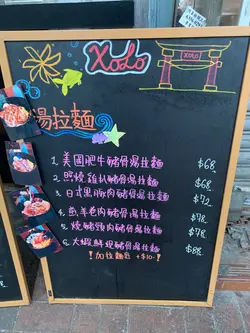 XOLO
XOLO
湯拉麵
1. 美國肥牛豬骨湯拉麵 $68
2. 照燒雞扒豬骨湯拉麵 $68
3. 日式黑豚肉豬骨湯拉麵 $72
4. 魚羊色肉豬骨湯拉麵 $78
5. 燒豬頸肉豬骨湯拉麵 $78
6. 大蝦鮮蜆豬骨湯拉麵 $88
!加拉麵底 +$10-!